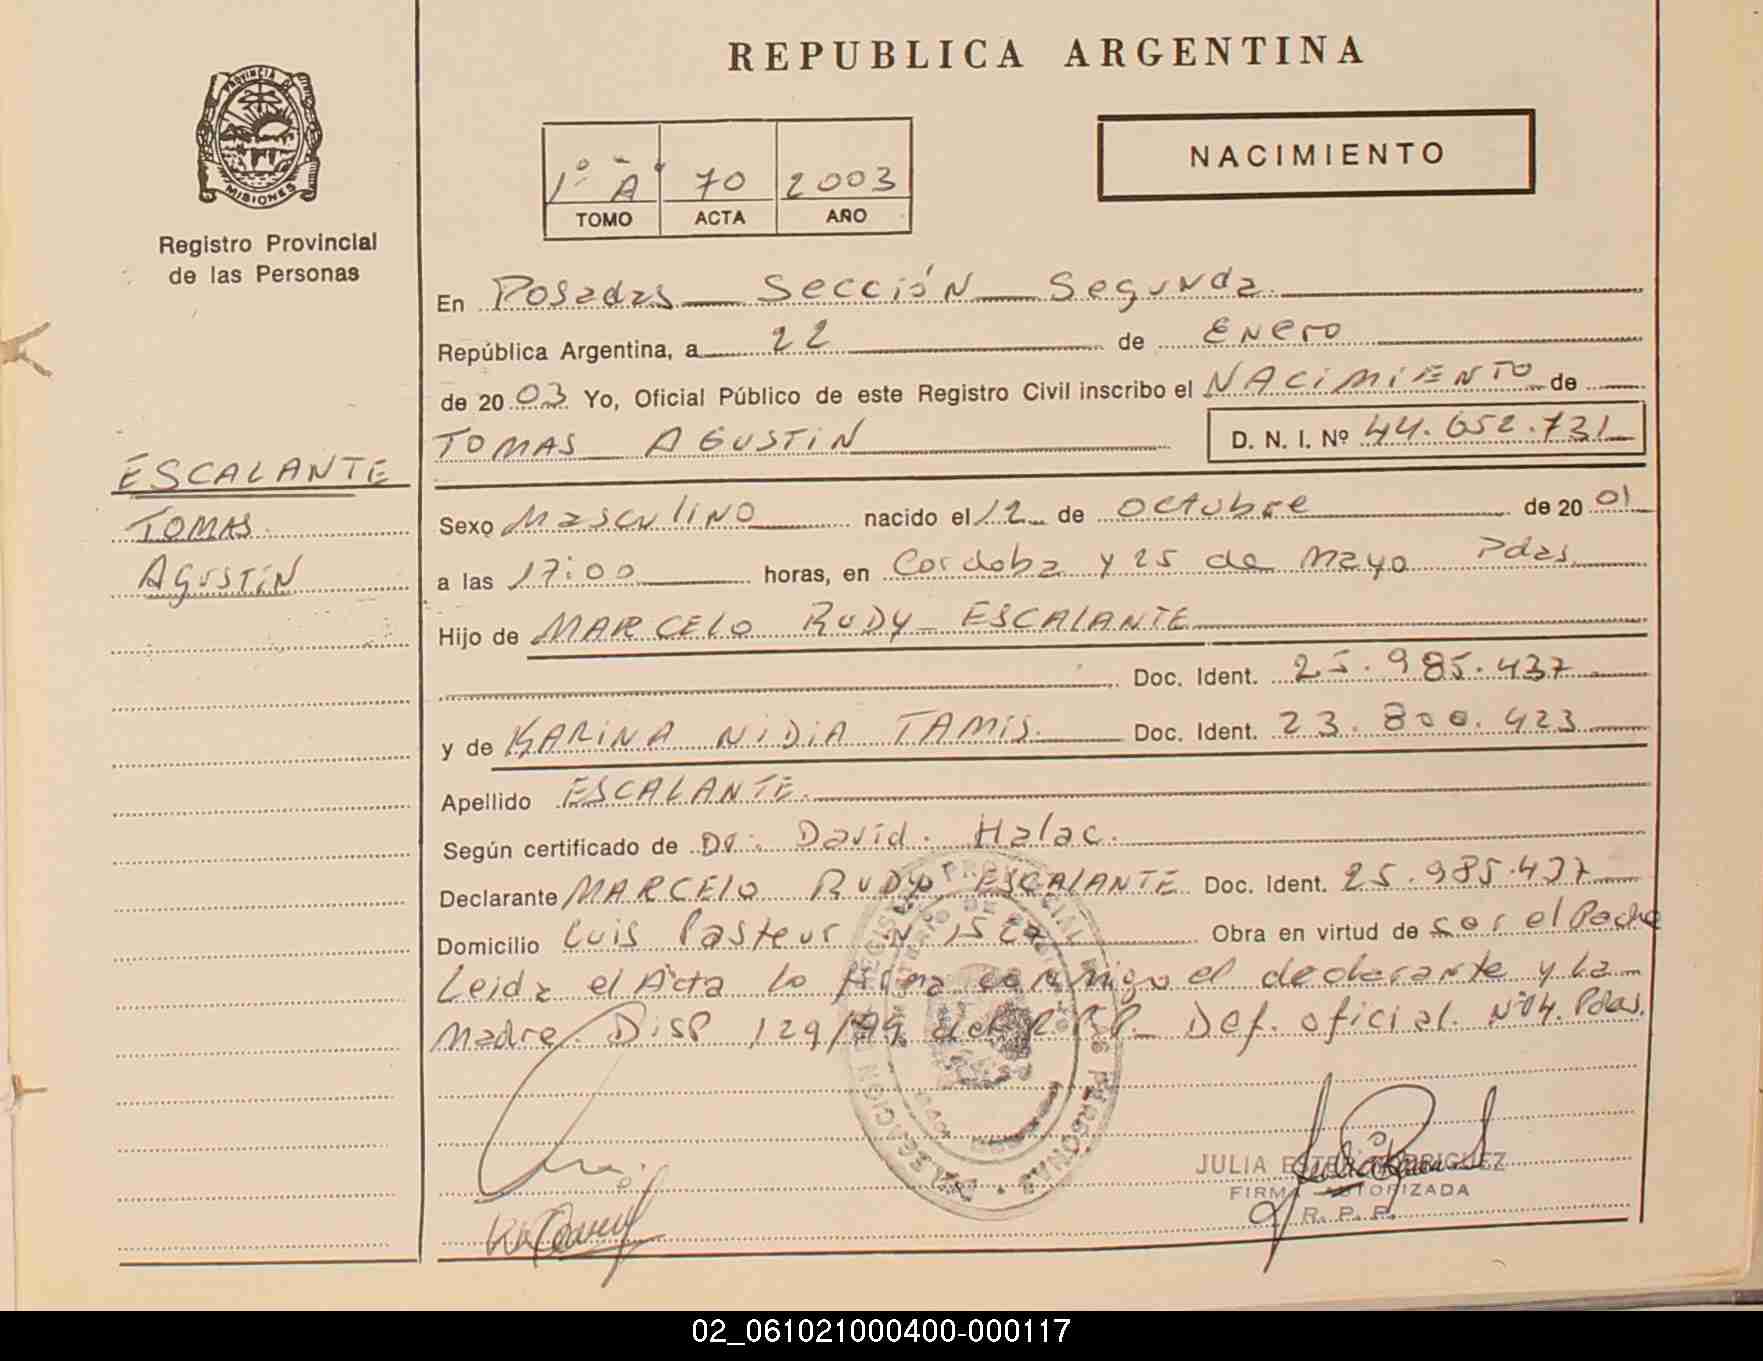 REPUBLICA ARGENTINA
PROVINCIA DE
MISIONES
Registro Provincial
de las Personas
NACIMIENTO
1º "A" 70 2003
TOMO ACTA AÑO
En Posadas Sección Segunda
República Argentina, a 22 de Enero
de 2003 Yo, Oficial Público de este Registro Civil inscribo el NACIMIENTO de
TOMAS AGUSTIN D. N. I. Nº 44.652.731
ESCALANTE
TOMAS
AGUSTIN
Sexo Masculino nacido el 12 de Octubre de 2001
a las 17:00 horas, en Cordoba y 25 de Mayo Pdas.
Hijo de MARCELO RUDY ESCALANTE
Doc. Ident. 25.985.437
y de KARINA NIDIA TAMIS. Doc. Ident. 23.800.423
Apellido ESCALANTE.
Según certificado de Dr. David Halac.
Declarante MARCELO RUDY ESCALANTE Doc. Ident. 25.985.437
Domicilio Luis Pasteur Nº Obra en virtud de ser el Padre
Leida el Acta lo firma conmigo el declarante y la
Madre. Disp 129/99 del R.P.P. Def. oficial. Nº04. Pdas.
REGISTRO PROVINCIAL DE LAS PERSONAS
DELEGACION
JULIA ESTER RODRIGUEZ
FIRMA AUTORIZADA
R. P. P.
02_061021000400-000117